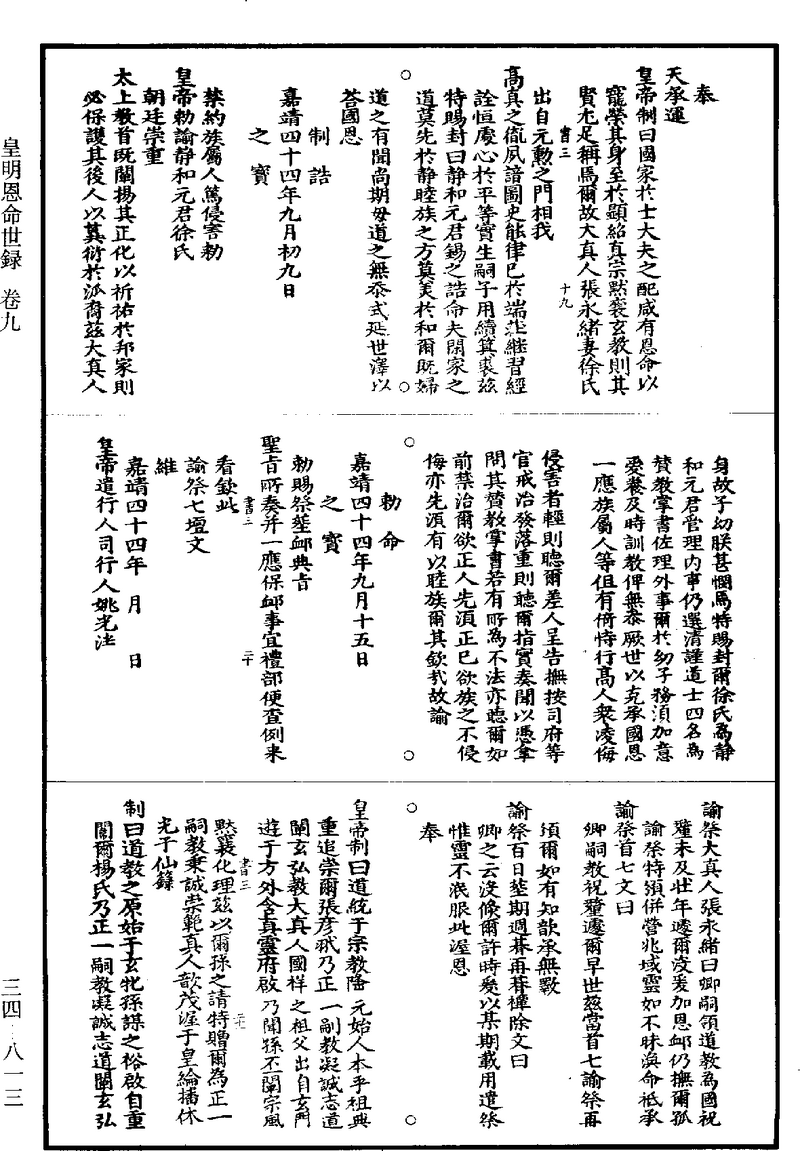 皇明恩命世録　卷九
三四・八一三
奉
天承運
皇帝制曰國家於士大夫之配咸有恩命以
寵榮其身至於顯紹真宗默裹玄教則其
賢尤足稱焉爾故大真人張永緒妻徐氏
書三　十九
出自元勲之門相我
高真之胤夙諳圖史能律已於端莊継習經
詮恒處心於平等實生嗣子用續箕裘兹
特賜封曰静和元君錫之誥命夫閑家之
道莫先於静睦族之方莫美於和爾既婦
道之有聞尚期母道之無忝式延世澤以
荅國恩
制誥
嘉靖四十四年九月初九日
之寶
禁約族屬人等侵害勅
皇帝勅諭静和元君徐氏
朝廷崇重
太上教首既闡揚其正化以祈祐於邦家則
必保護其後人以蕃衍於派裔兹大真人
身故子幼朕甚憫焉特賜封爾徐氏為靜
和元君管理内事仍選清謹道士四名為
賛教掌書佐理外事爾於幼子務須加意
愛養及時訓教俾無忝厥世以克承國恩
一應族屬人等但有倚恃行髙人衆凌侮
侵害者輕則聽爾差人呈告撫按司府等
官戒治發落重則聽爾指實奏聞以憑拿
問其賛教掌書若有所為不法亦聽爾如
前禁治爾欲正人先須正已欲族之不侵
侮亦先須有以睦族爾其欽哉故諭
勅命
嘉靖四十四年九月十五日
之寶
勅賜祭塟䘏典㫖
聖㫖所奏并一應保䘏事宜禮部便查例来
書三　二十
看欽此
諭祭七壇文
維
嘉靖四十四年　月　日
皇帝遣行人司行人姚光泮
諭祭大真人張永緒曰卿嗣領道教為國祝
釐未及壯年遽爾淩爰加恩䘏仍撫爾孤
諭祭特頒併營兆域靈如不昧渙命祗承
諭祭首七文曰
卿嗣教祝釐遽爾早世兹當首七諭祭再
頒爾如有知歆承無斁
諭祭百日塟期週朞再朞禫除文曰
卿之云没倏爾許時爰以某期載用遣祭
惟靈不泯服此渥恩
奉
皇帝制曰道統于宗教隆　元始人本乎祖典
重追崇爾張彦頨乃正一嗣教凝誠志道
闡玄弘教大真人國祥之祖父出自玄門
遊于方外含真靈府啟乃闓孫丕闡宗風
書三　二十一
默襄化理兹以爾孫之請特贈爾為正一
嗣教秉誠崇範真人歆茂渥于皇綸播休
光于仙籙
制曰道教之原始于玄牝孫謀之裕啟自重
闈爾楊氏乃正一嗣教凝誠志道闡玄弘